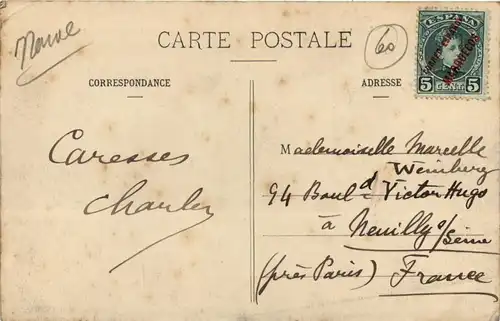 CARTE POSTALE
60
ESPAÑA
MARRUECOS
5 CENT. 5
CORRESPONDANCE
ADRESSE
Caresses
Charles
Mademoiselle Marcelle
Weinberg
94 Boul^d Victor Hugo
à Neuilly s/Seine
(près Paris) France